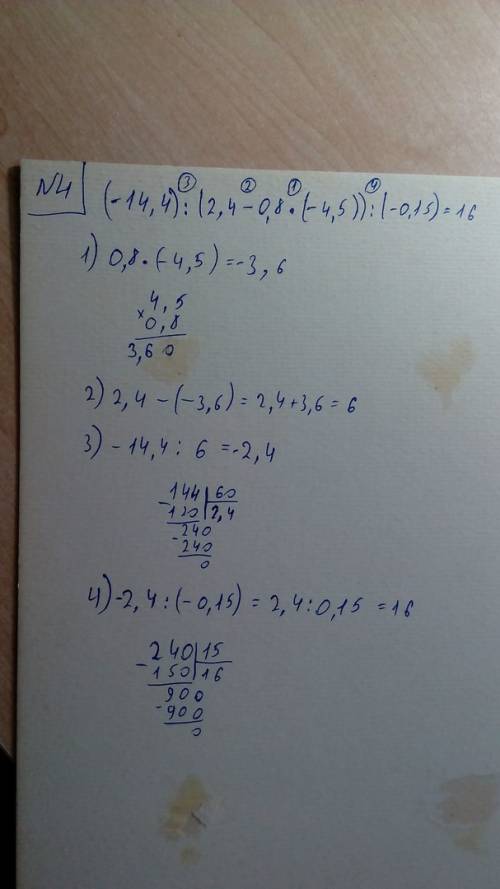 №4
③ ② ① ④
(-14,4):(2,4-0,8·(-4,5)):(-0,15)=16
1) 0,8·(-4,5)=-3,6
4,5
×
0,8
3,60
2) 2,4-(-3,6)=2,4+3,6=6
3) -14,4: 6 =-2,4
144|60
-120|2,4
-240
240
0
4) -2,4:(-0,15) = 2,4:0,15 =16
240|15
-150|16
900
-900
0